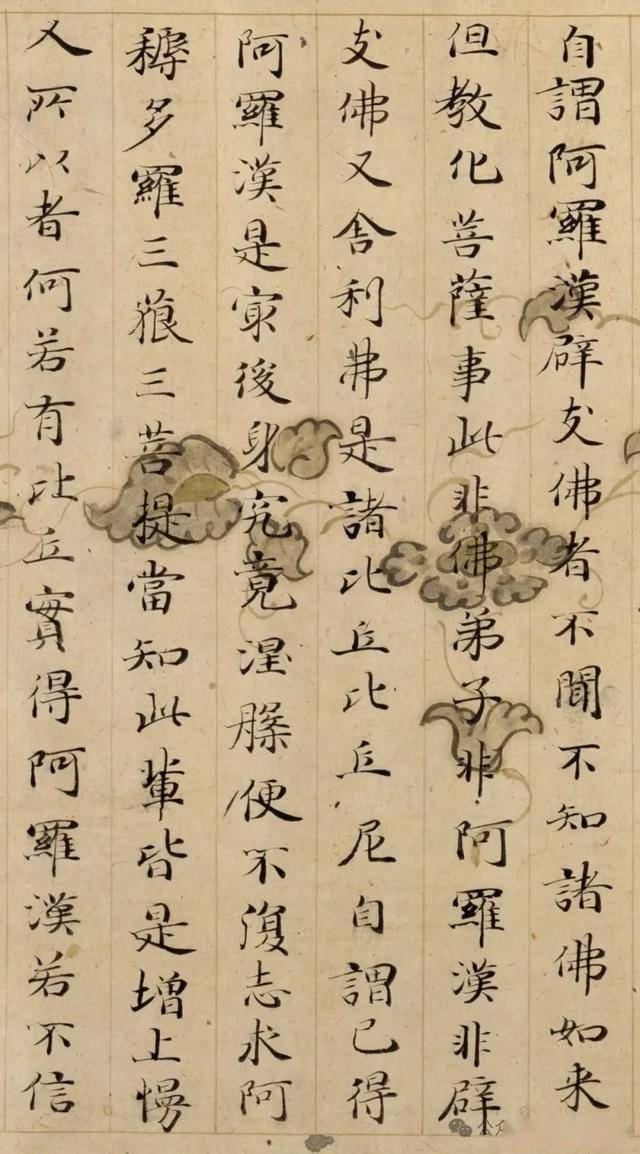 自謂阿羅漢辟支佛者不聞不知諸佛如来
但教化菩薩事此非佛弟子非阿羅漢非辟
支佛又舍利弗是諸比丘比丘尼自謂已得
阿羅漢是㝡後身究竟涅槃便不復志求阿
耨多羅三藐三菩提當知此輩皆是增上慢
人所以者何若有比丘實得阿羅漢若不信